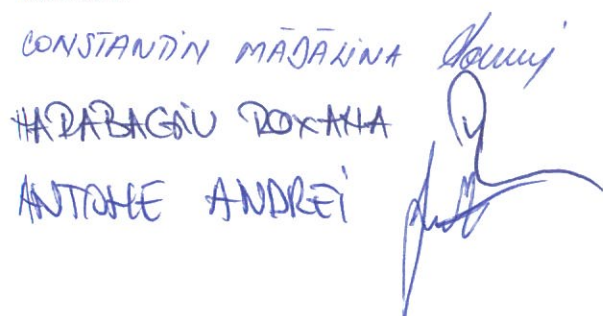 CONSTANTIN MĂDĂLINA
HARABAGIU ROXANA
ANTOHE ANDREI